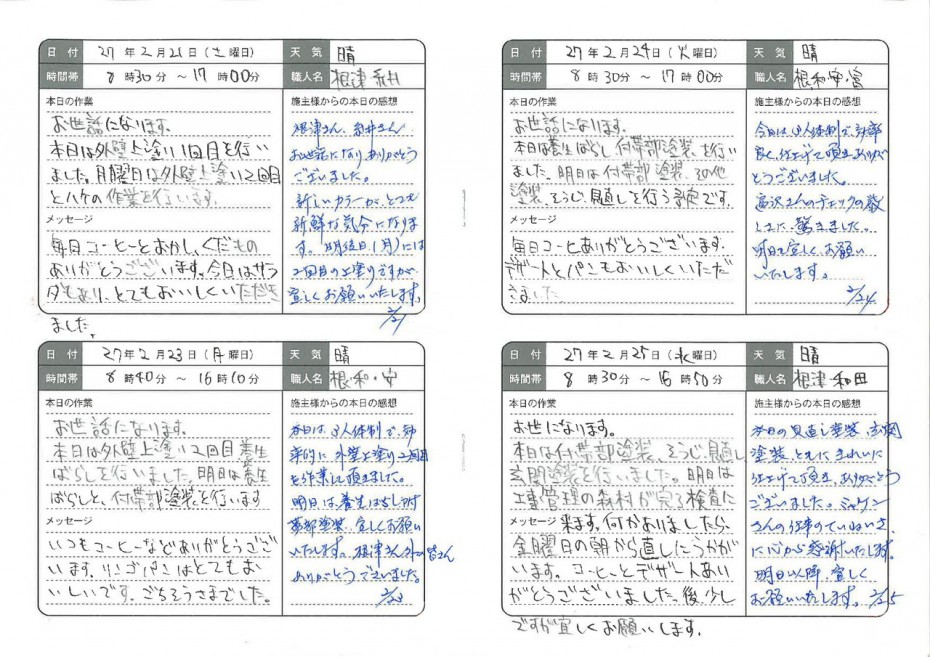 日付 27年2月21日(土曜日) 天気 晴
時間帯 8時30分 ~17時00分 職人名 根津
本日の作業
お世話になります。
本日は外壁上塗り1回目を行い
ました。月曜日は外壁上塗り2回目
とハケの作業を行います。
メッセージ
毎日コーヒーとおかし、くだもの
ありがとうございます。今日はサラ
ダもあり、とてもおいしくいただき
ました。
施主様からの本日の感想
根津さん、
お世話になりありがとう
ございました。
新しいカラーが、とても
新鮮な気分になりま
す。明後日(月)には
2回目の上塗りですが
宜しくお願いいたします。
2/21
日付 27年2月23日(月曜日) 天気 晴
時間帯 8時40分 ~16時10分 職人名 根・和・安
本日の作業
お世話になります。
本日は外壁上塗り2回目養生
ばらしを行いました。明日は養生
ばらしと、付帯部塗装を行います
メッセージ
いつもコーヒーなどありがとうござい
います。リンゴパイはとてもお
いしいです。ごちそうさまでした。
施主様からの本日の感想
本日は、3人体制で、効
率的に、外壁上塗り2回目
を作業して頂きました。
明日は、養生はらし、付
帯部塗装、宜しくお願い
いたします。根津さん外の皆さん
ありがとうございました。
2/23
日付 27年2月24日(火曜日) 天気 晴
時間帯 8時30分 ~17時00分 職人名 根・和・安・富
本日の作業
お世話になります。
本日は養生ばらし、付帯部塗装、を行い
ました。明日は付帯部塗装、その他
塗装、そうじ、見直しを行う予定です。
メッセージ
毎日コーヒありがとうございます。
デザートとパンもおいしくいただ
きました。
施主様からの本日の感想
今日は、3人体制で、効率
良く、仕上げて頂きありが
とうございました。
富沢さんのチェックの厳
しさに、驚きました。
明日も宜しくお願い
いたします。
2/24
日付 27年2月25日(水曜日) 天気 晴
時間帯 8時30分 ~16時50分 職人名 根津・和田
本日の作業
お世になります。
本日は付帯部塗装、そうじ、見直し
玄関塗装を行いました。明日は
工事管理の森村が完了検査に
メッセージ 来ます。何かありましたら、
金曜日の朝から直しにうかがが
います。コーヒーとデザートあり
がとうございました。後、少し
ですが宜しくお願いします。
施主様からの本日の感想
本日の見直し塗装、玄関
塗装、ともにきれいに
仕上げて頂き、ありがとう
ございました。ミヤケン
さんの仕事のていねいさ
に心から感謝いたします。
明日以降、宜しく
お願いいたします。2/25